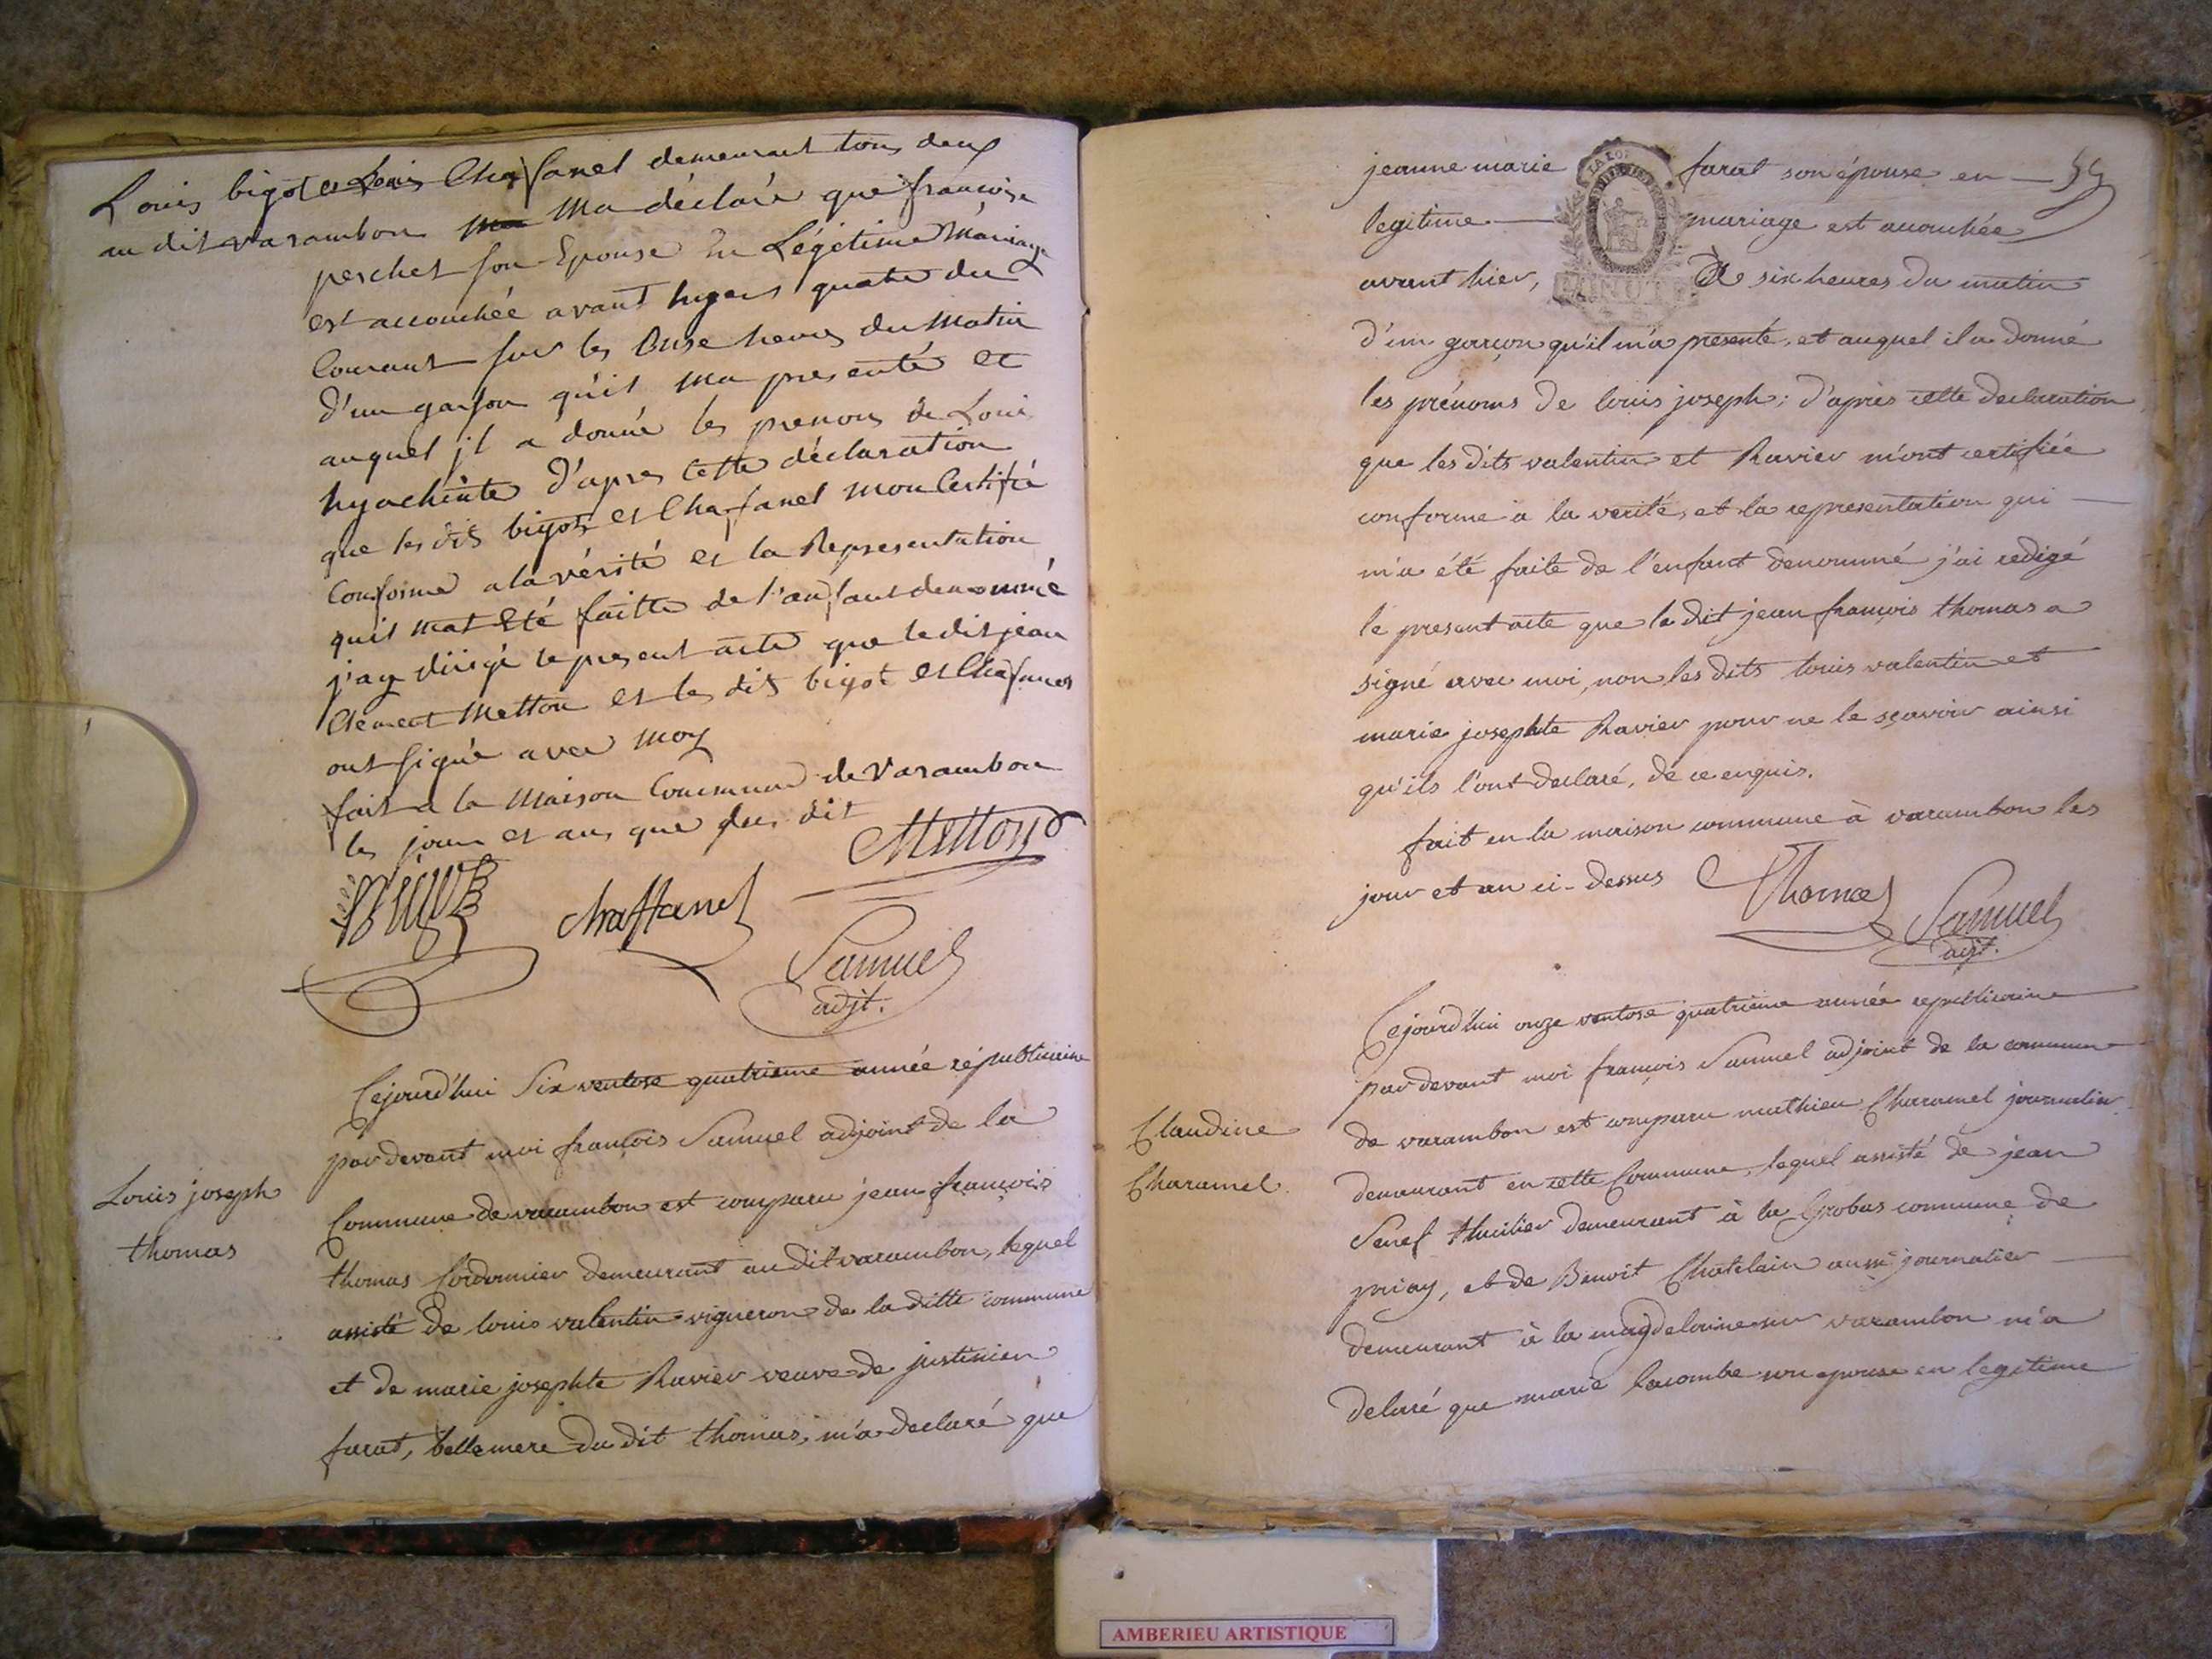 Louis bigot et Louis Chaffanel demeurant tous deux
au dit varambon ma déclaré que françoise
perchet son Epouse En Légétime Mariage
est accouchée avant hyers quatre du
Courant sur les Onse heures du Matin
d'un garson qu'il ma presenté et
auquel jl a donné les prenons de Loui
hyachinte d'apres cette déclaration
que les dits bigot et Chaffanel mon Certifié
Conforme a la vérité et la Representation
quil mat Eté faitte de l'anfant denommé
j'ay dirigé le present acte que le dit jean
Clément Metton et les dit bigot et Chaffanel
ont signé avec moy
fait a la Maison Commune de Varambon
les jour et ans que sus dit
Metton
chaffanel
Samuel
adjt.
Cejourd'hui Six ventose quatrieme année républicaine
par devant moi françois Samuel adjoint de la
Commune de varambon est comparu jean françois
Louis joseph
thomas
thomas Cordonnier demeurant au dit varambon, lequel
assisté de louis valentin vigneron de la ditte commune
et de marie josephte Ravier veuve de justinien
farat, belle mere du dit thomas, m'a declaré que
jeanne marie farat son épouse en
legitime mariage est accouchée
avant hier, de six heures du matin
d'un garçon qu'il m'a presenté, et auquel il a donné
les prénoms de louis joseph; d'après cette declaration
que les dits valentin et Ravier m'ont certifiée
conforme a la verité, et la representation qui
m'a été faite de l'enfant denommé j'ai redigé
le present acte que le dit jean françois thomas a
signé avec moi, non les dits louis valentin et
marie josephte Ravier pour ne le sçavoir ainsi
qu'ils l'ont declaré, de ce enquis.
fait en la maison commune à varambon les
jour et an ci-dessus
Thomas
Samuel
adjt.
Cejourd'hui onze ventose quatrieme année republicaine
par devant moi françois Samuel adjoint de la commune
Claudine
Charamel
de varambon est comparu mathieu Charamel journalier
demeurant en cette Commune, lequel assisté de jean
thuilier demeurant à la Grobas commune de
priay, et de Benoit Chatelain aussi journalier
demeurant à la magdelaine sur varambon m'a
delaré que marie lacombe son epouse en legitime
AMBERIEU ARTISTIQUE